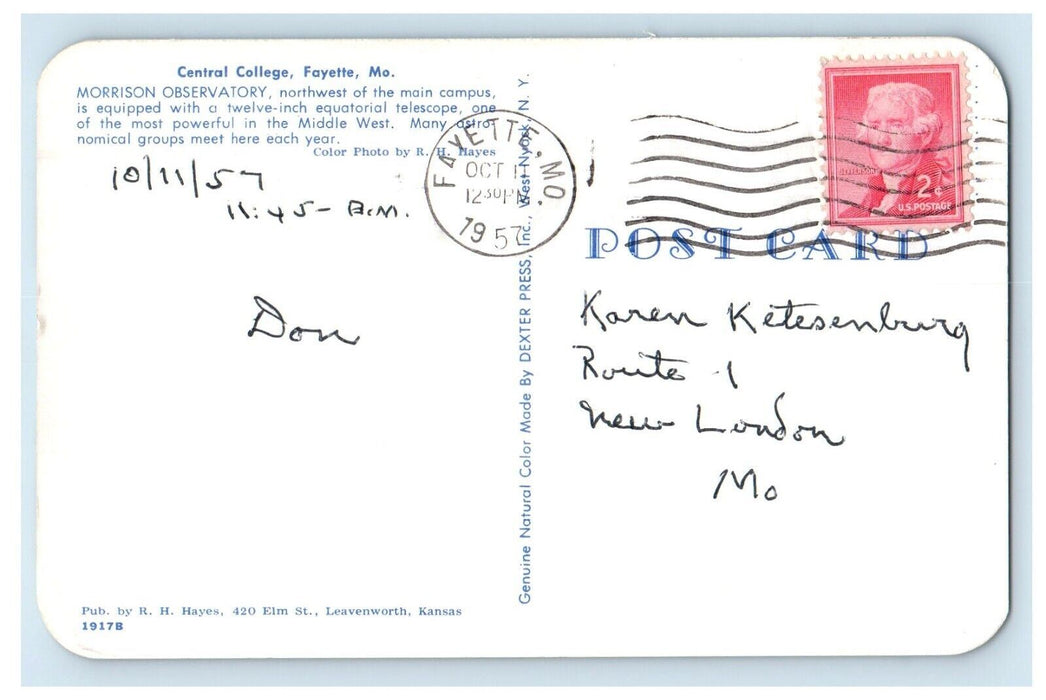 Central College, Fayette, Mo.
MORRISON OBSERVATORY, northwest of the main campus,
is equipped with a twelve-inch equatorial telescope, one
of the most powerful in the Middle West. Many astro-
nomical groups meet here each year.
Color Photo by R. H. Hayes
10/11/57
11:45- A.M.
Don
Pub. by R. H. Hayes, 420 Elm St., Leavenworth, Kansas
1917B
Genuine Natural Color Made By DEXTER PRESS, Inc., West Nyack, N. Y.
FAYETTE, MO.
OCT 11
12 30 PM
1957
JEFFERSON
2¢
U.S. POSTAGE
POST CARD
Karen Ketesenburg
Route 1
New London
Mo